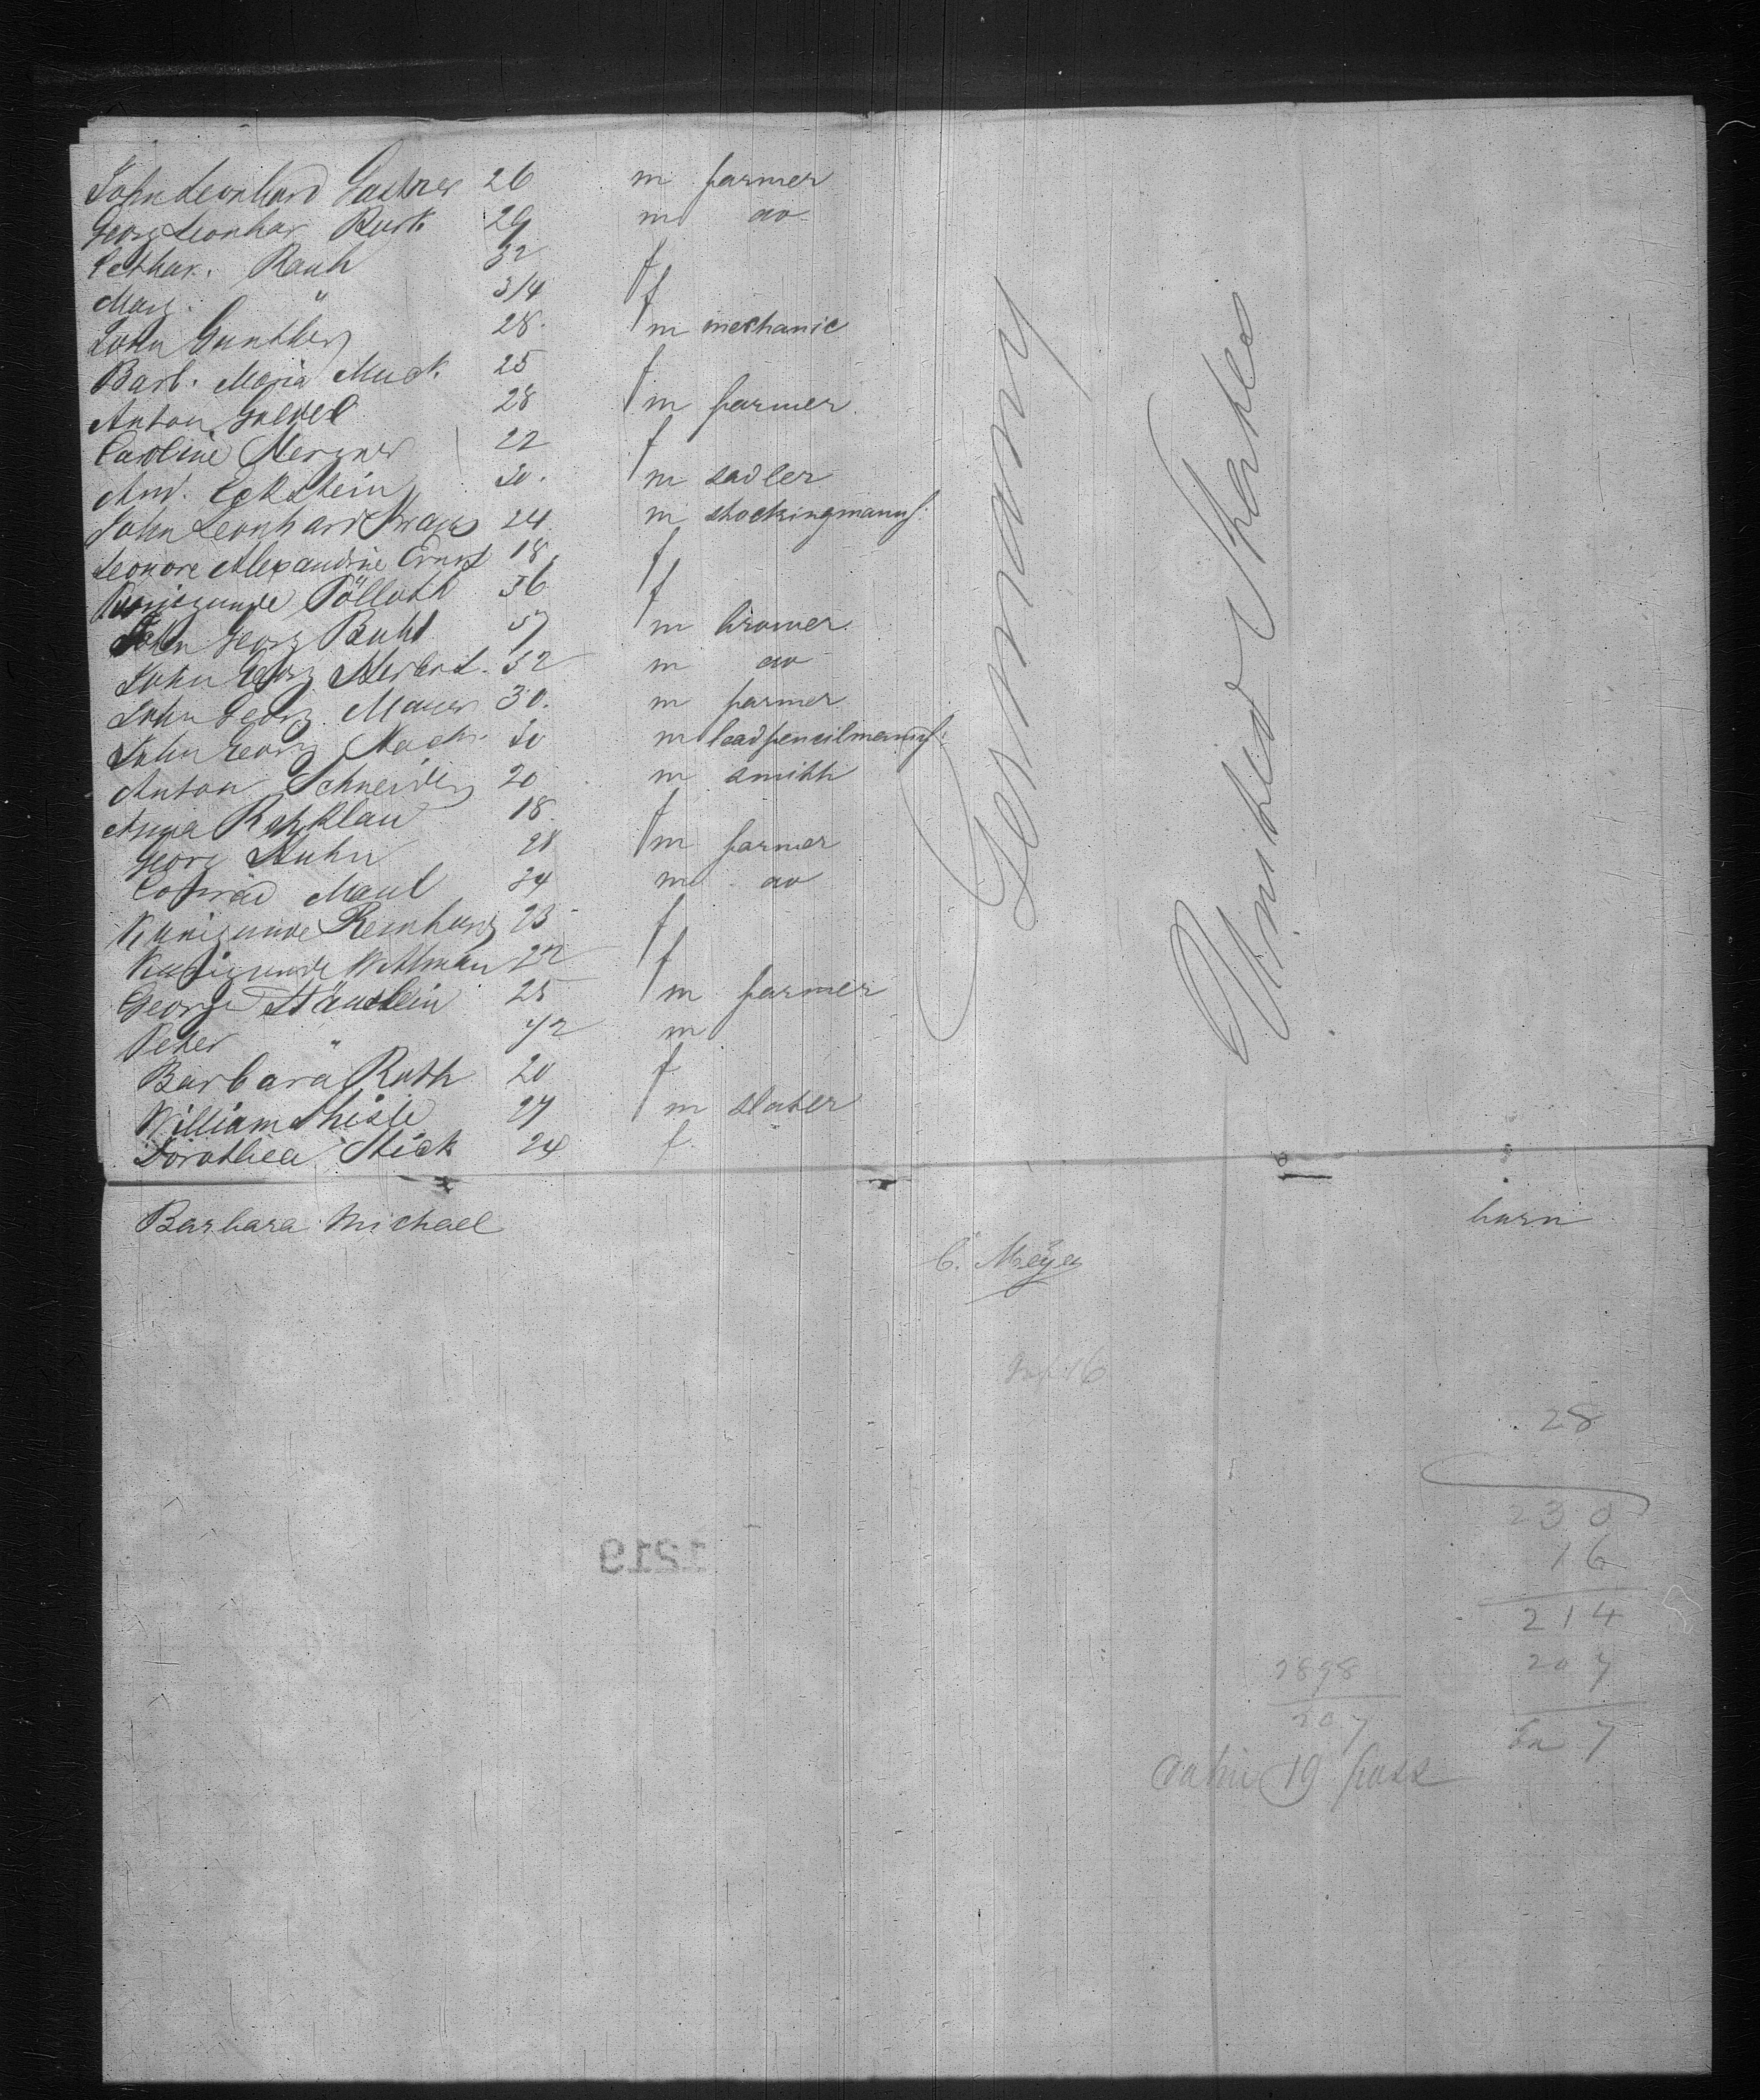 John Leonhard Gastner 26 m farmer
Georg Leonhar Rurk 29 m do
Cathar. Rauh 32 f
Marg. " 3/4 f
John Gunther 28 m mechanic
Barb. Maria Muck 25 f
Anton Goldel 28 m farmer
Caroline Mergner 22 f
And. Eckstein 30. m sadler
John Leonhard Kraus 24 m stockingmanuf:
Leonore Alexandrine Ernst 18 f
Kunigunde Pöllath 36 f
John Georg Buhl 37 m brower
John Georg Herbst 32 m do
John Georg Mauer 30. m farmer
John Georg 30 m leadpencilmanuf:
Anton Schneider 20 m smith
Anna Rehklau 18. f
Georg Kuhn 28 m farmer
Conrad Maul 34 m do
Kunigunde Reinhard 23 f
Kunigunde Wittman 22 f
George Häuslein 25 m farmer
Peter " 42 m
Barbara Ruth 20 f
William Thisle 27 m slater
Dorothea Stick 24 f.
Germany
United States
Barbara Michael born
C. Meyer
28
230
16
1219
214
2898 207
207 7
19 pass